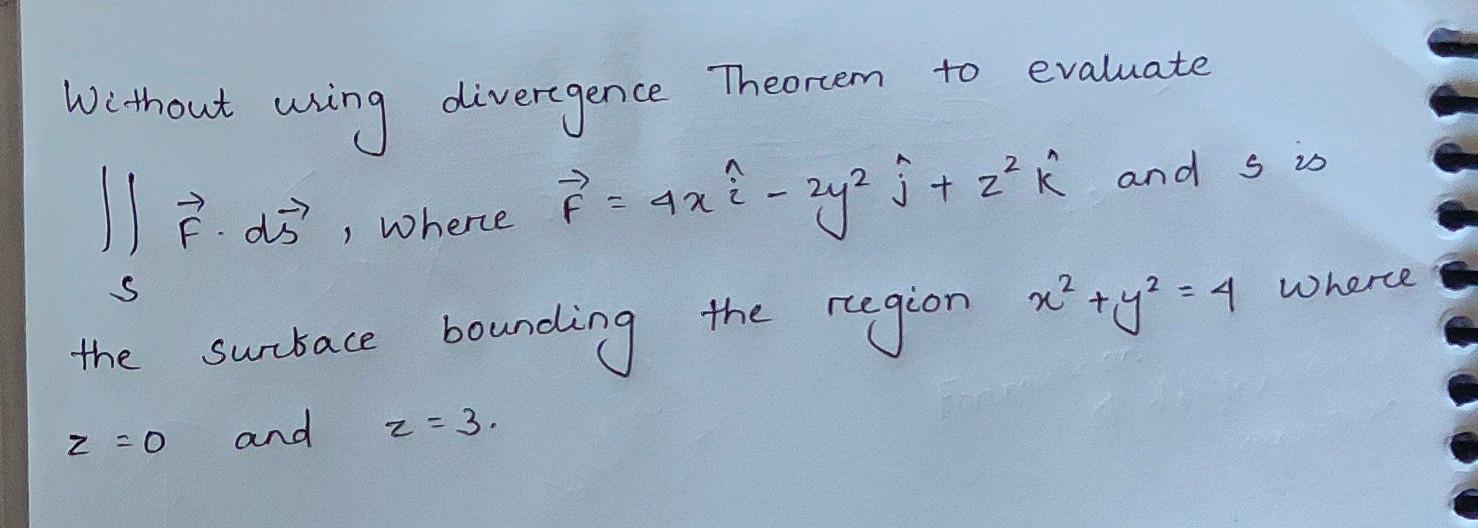 Without using divergence Theorem to evaluate
∬ F⃗ . ds⃗ , where F⃗ = 4x î - 2y² ĵ + z² k̂ and s is
S
the surface bounding the region x² + y² = 4 where
z = 0 and z = 3.